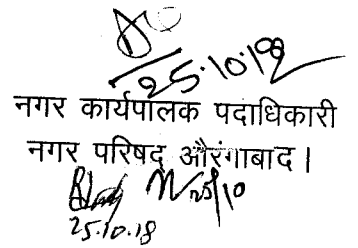 25.10.18
नगर कार्यपालक पदाधिकारी
नगर परिषद् औरंगाबाद।
25/10
25.10.18